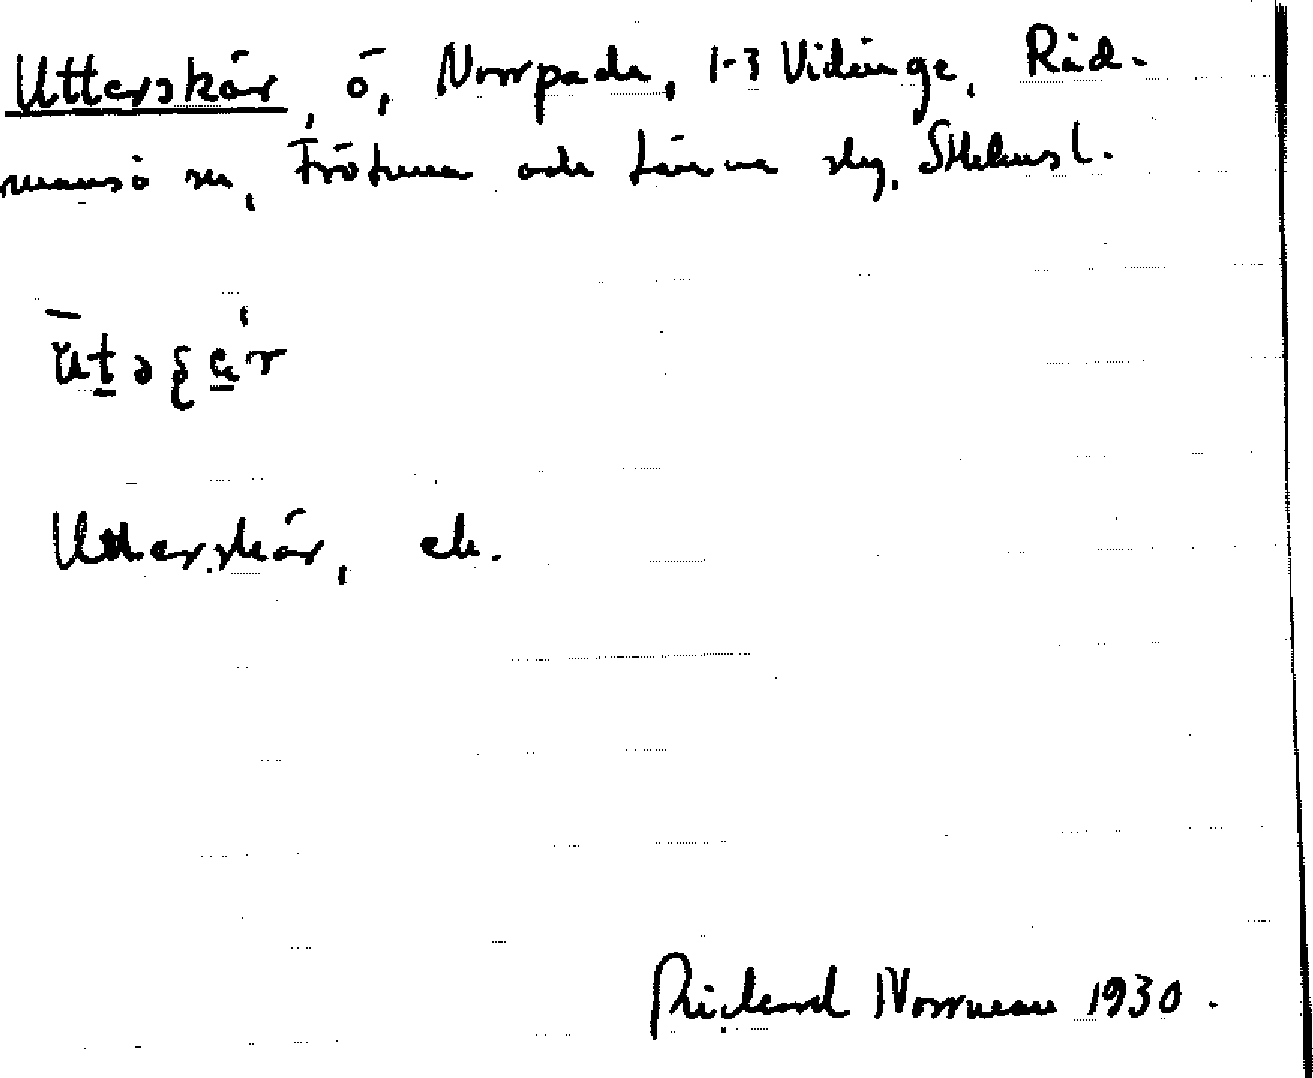 Utterskär, ö, Norrpada, 1-3 Vidinge, Råd-
mansö sn, Frötuna och Länna slg, Sthlms l.
Utterskär, ek.
Rickard Norrman 1930.